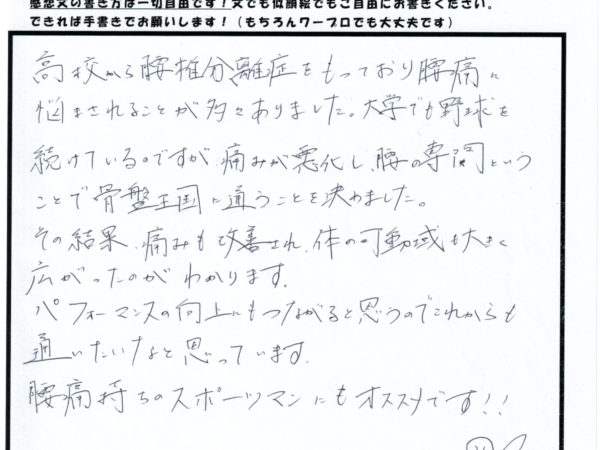 感想文の書き方は一切自由です！文でも似顔絵でもご自由にお書きください。
できれば手書きでお願いします！（もちろんワープロでも大丈夫です）
高校から腰椎分離症をもっており腰痛に
悩まされることが多々ありました。大学でも野球を
続けているのですが、痛みが悪化し、腰の専門という
ことで骨盤王国に通うことを決めました。
その結果、痛みも改善され、体の可動域も大きく
広がったのがわかります。
パフォーマンスの向上にもつながると思うのでこれからも
通いたいなと思っています。
腰痛持ちのスポーツマンにもオススメです!!